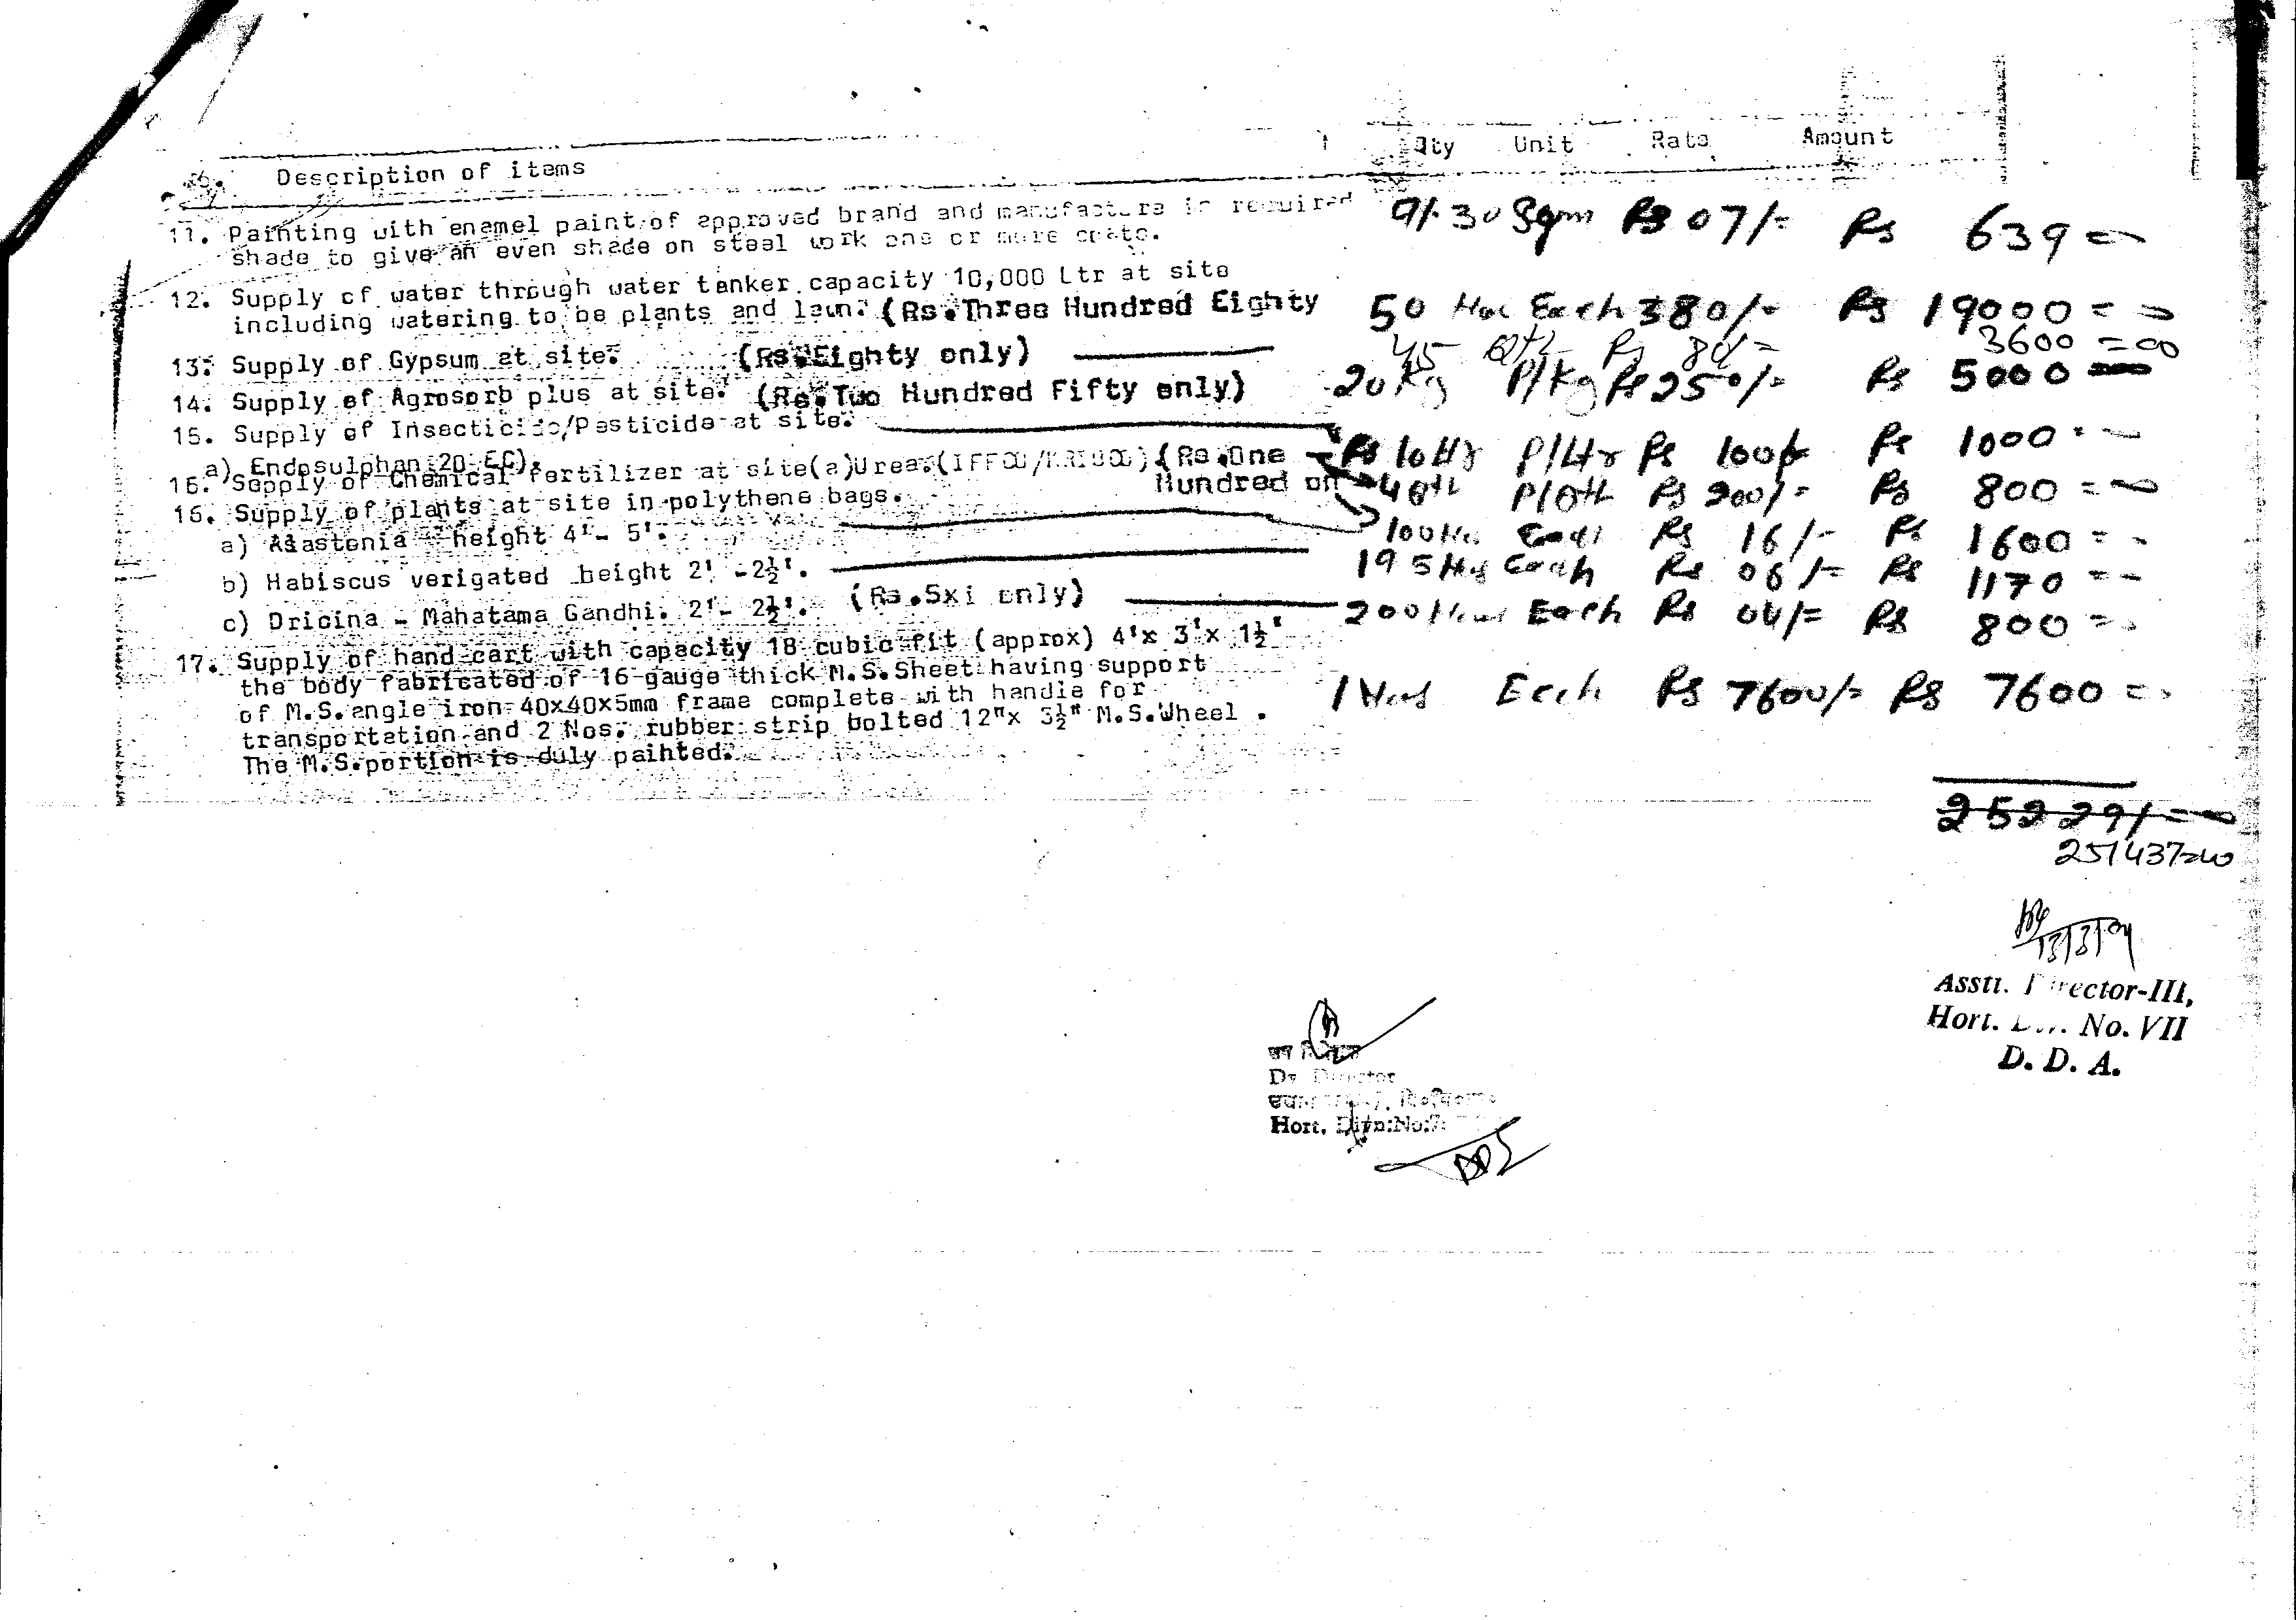 Description of items Qty Unit Rate Amount
11. Painting with enamel paint of approved brand and manufacture in required 91.30 Sqm Rs 07/- Rs 639=00
shade to give an even shade on steel work one or more coats.
12. Supply of water through water tanker capacity 10,000 Ltr at site
including watering to be plants and lawn. (Rs.Three Hundred Eighty 50 Nos Each 380/- Rs 19000=00
13. Supply of Gypsum at site. (Rs.Eighty only) 45 Qtl Rs 80/= 3600=00
14. Supply of Agrosorb plus at site. (Rs.Two Hundred Fifty only) 20 Kg P/Kg Rs 250/- Rs 5000=00
15. Supply of Insecticide/Pesticide at site.
a) Endosulphan 20 EC). Rs 10 Ltr P/Ltr Rs 100/- Rs 1000.-
16. Supply of Chemical fertilizer at site(a)Urea.(IFFCO/KRIBCO)(Rs.One
Hundred on 4 Qtl P/Qtl Rs 200/- Rs 800=00
16. Supply of plants at site in polythene bags.
a) Alastonia height 4'- 5'. 100 Nos Each Rs 16/- Rs 1600=-
b) Habiscus verigated height 2' -2½'. 195 Nos Each Rs 06/= Rs 1170=-
c) Dricina - Mahatama Gandhi. 2'- 2½'. (Rs.Sxi only) 200 Nos Each Rs 04/= Rs 800=-
17. Supply of hand cart with capacity 18 cubic fit (approx) 4'x 3'x 1½'
the body fabricated of 16 gauge thick M.S.Sheet having support
of M.S.angle iron 40x40x5mm frame complete with handle for 1 Nos Each Rs 7600/- Rs 7600=-
transportation and 2 Nos. rubber strip bolted 12"x 3½" M.S.Wheel .
The M.S.portion is duly painted.
25229/=00
251437=40
Asstt. Director-III,
Hort. No. VII
D. D. A.
Dy. Director
Hort. Divn.No.7